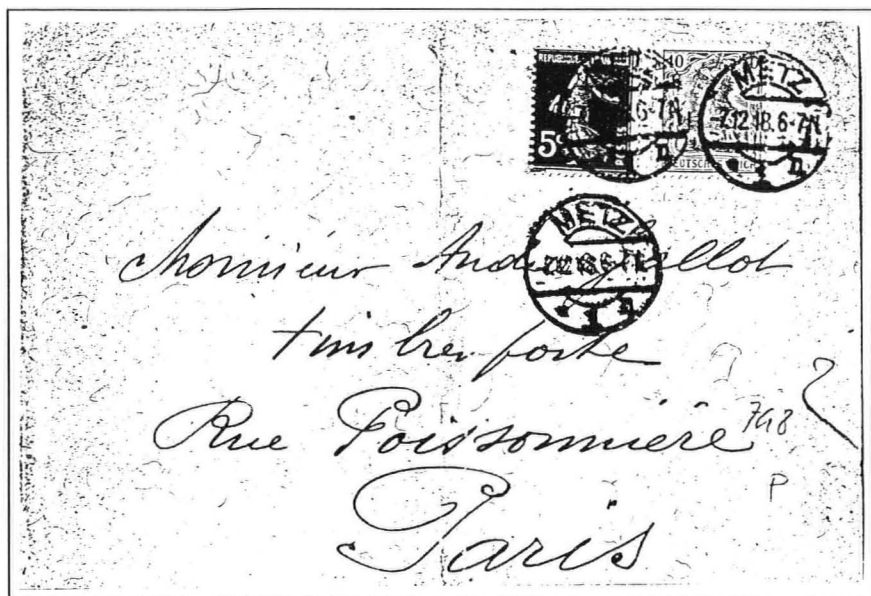 REPUBLIQUE
5c
10
DEUTSCHES REICH
METZ
7.12.18.6-7N
1 n
METZ
7.12.18.6-7N
1 n
Monsieur André
timbres poste
Rue Poissonnière
748
P
Paris